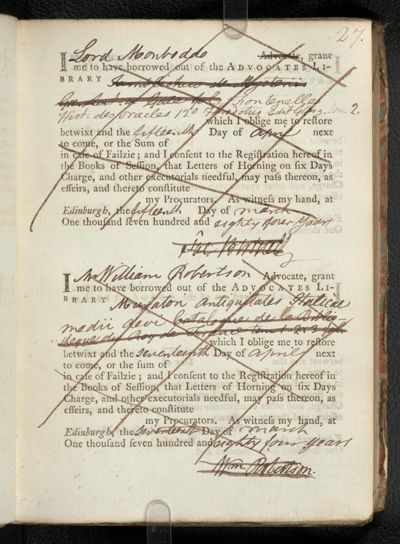 27.
I Lord Monboddo Advocate, grant
me to have borrowed out of the ADVOCATES LI-
BRARY Jamblichus de Mysteriis
Fontenelles
Hist. des oracles 12o Tom 2.
which I oblige me to restore
betwixt and the fifteenth Day of April next
to come, or the Sum of
in case of Failzie; and I consent to the Registration hereof in
the Books of Session, that Letters of Horning on six Days
Charge, and other executorials needful, may pass thereon, as
effeirs, and thereto constitute
my Procurators. As witness my hand, at
Edinburgh, the fifteenth Day of march
One thousand seven hundred and eighty four years
I Mr William Robertson Advocate, grant
me to have borrowed out of the ADVOCATES LI-
BRARY Muraton Antiquitates Italicae
medii aevi Catalogue de la Biblio-
theque du Roy tom 1. 2. 3
which I oblige me to restore
betwixt and the seventeenth Day of April next
to come, or the sum of
in case of Failzie; and I consent to the Registration hereof in
the Books of Session, that Letters of Horning on six Days
Charge, and other executorials needful, may pass thereon, as
effeirs, and thereto constitute
my Procurators. As witness my hand, at
Edinburgh, the seventeenth Day of march
One thousand seven hundred and eighty four years
Wm Robertson